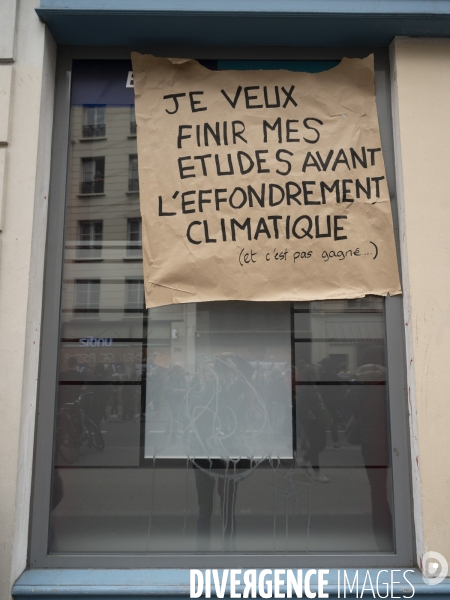 JE VEUX
FINIR MES
ETUDES AVANT
L'EFFONDREMENT
CLIMATIQUE
(et c'est pas gagné...)
DIVERGENCE IMAGES